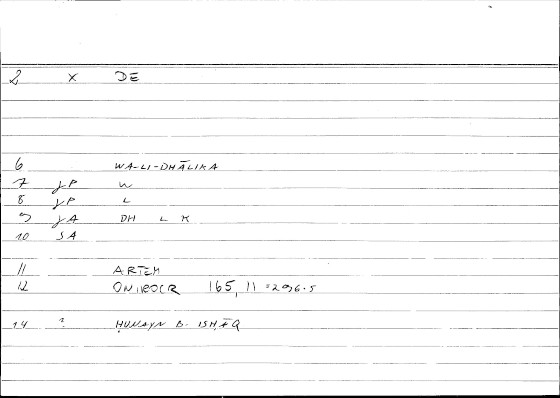 2 x DE
6 WA-LI-DHĀLIKA
7 JP W
8 JP L
9 JA DH L K
10 SA
11 ARTEM
12 ONIROCR 165,11 = 296.5
14 ? ḤUNAYN B. ISḤĀQ